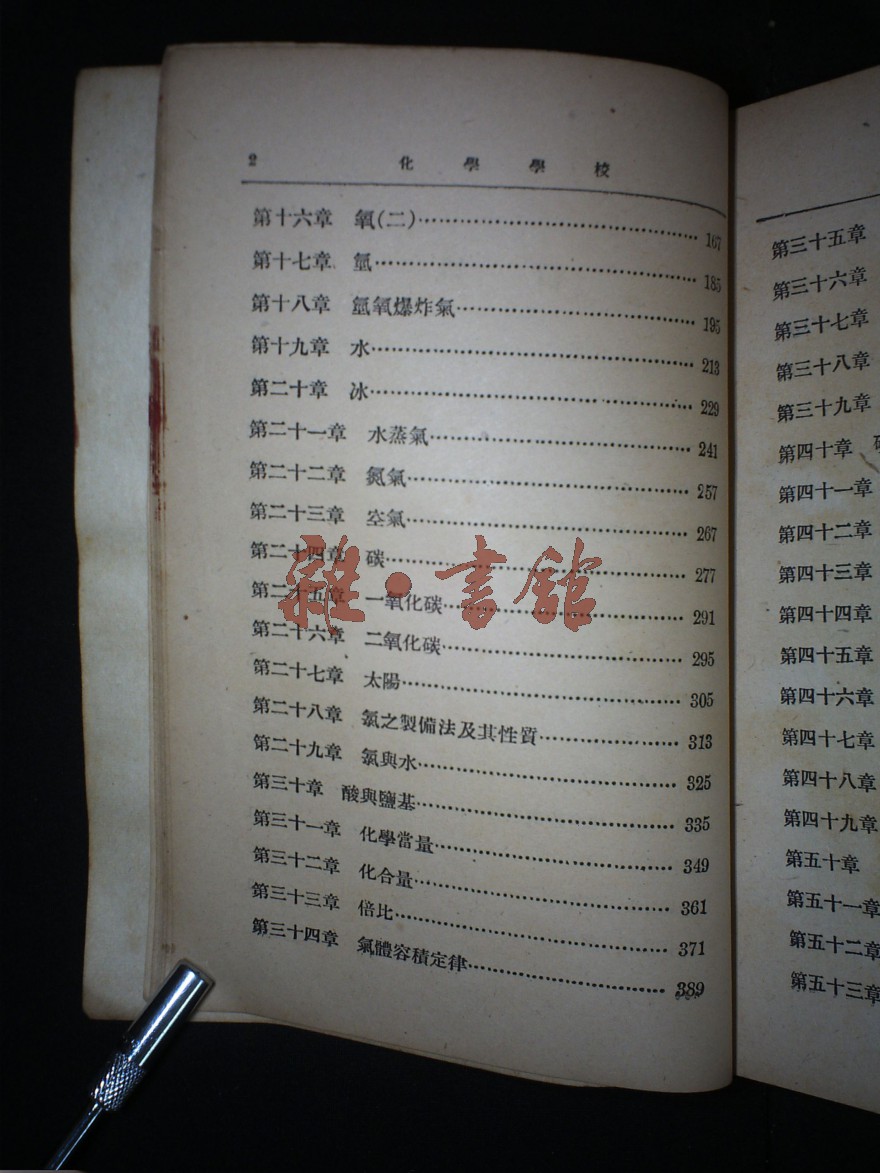 2 化學學校
第十六章 氧(二)……167
第十七章 氫……185
第十八章 氫氧爆炸氣……195
第十九章 水……213
第二十章 冰……229
第二十一章 水蒸氣……241
第二十二章 氮氣……257
第二十三章 空氣……267
第二十四章 碳……277
第二十五章 一氧化碳……291
第二十六章 二氧化碳……295
第二十七章 太陽……305
第二十八章 氯之製備法及其性質……313
第二十九章 氯與水……325
第三十章 酸與鹽基……335
第三十一章 化學當量……349
第三十二章 化合量……361
第三十三章 倍比……371
第三十四章 氣體容積定律……389
雜·書館
第三十五章
第三十六章
第三十七章
第三十八章
第三十九章
第四十章
第四十一章
第四十二章
第四十三章
第四十四章
第四十五章
第四十六章
第四十七章
第四十八章
第四十九章
第五十章
第五十一章
第五十二章
第五十三章